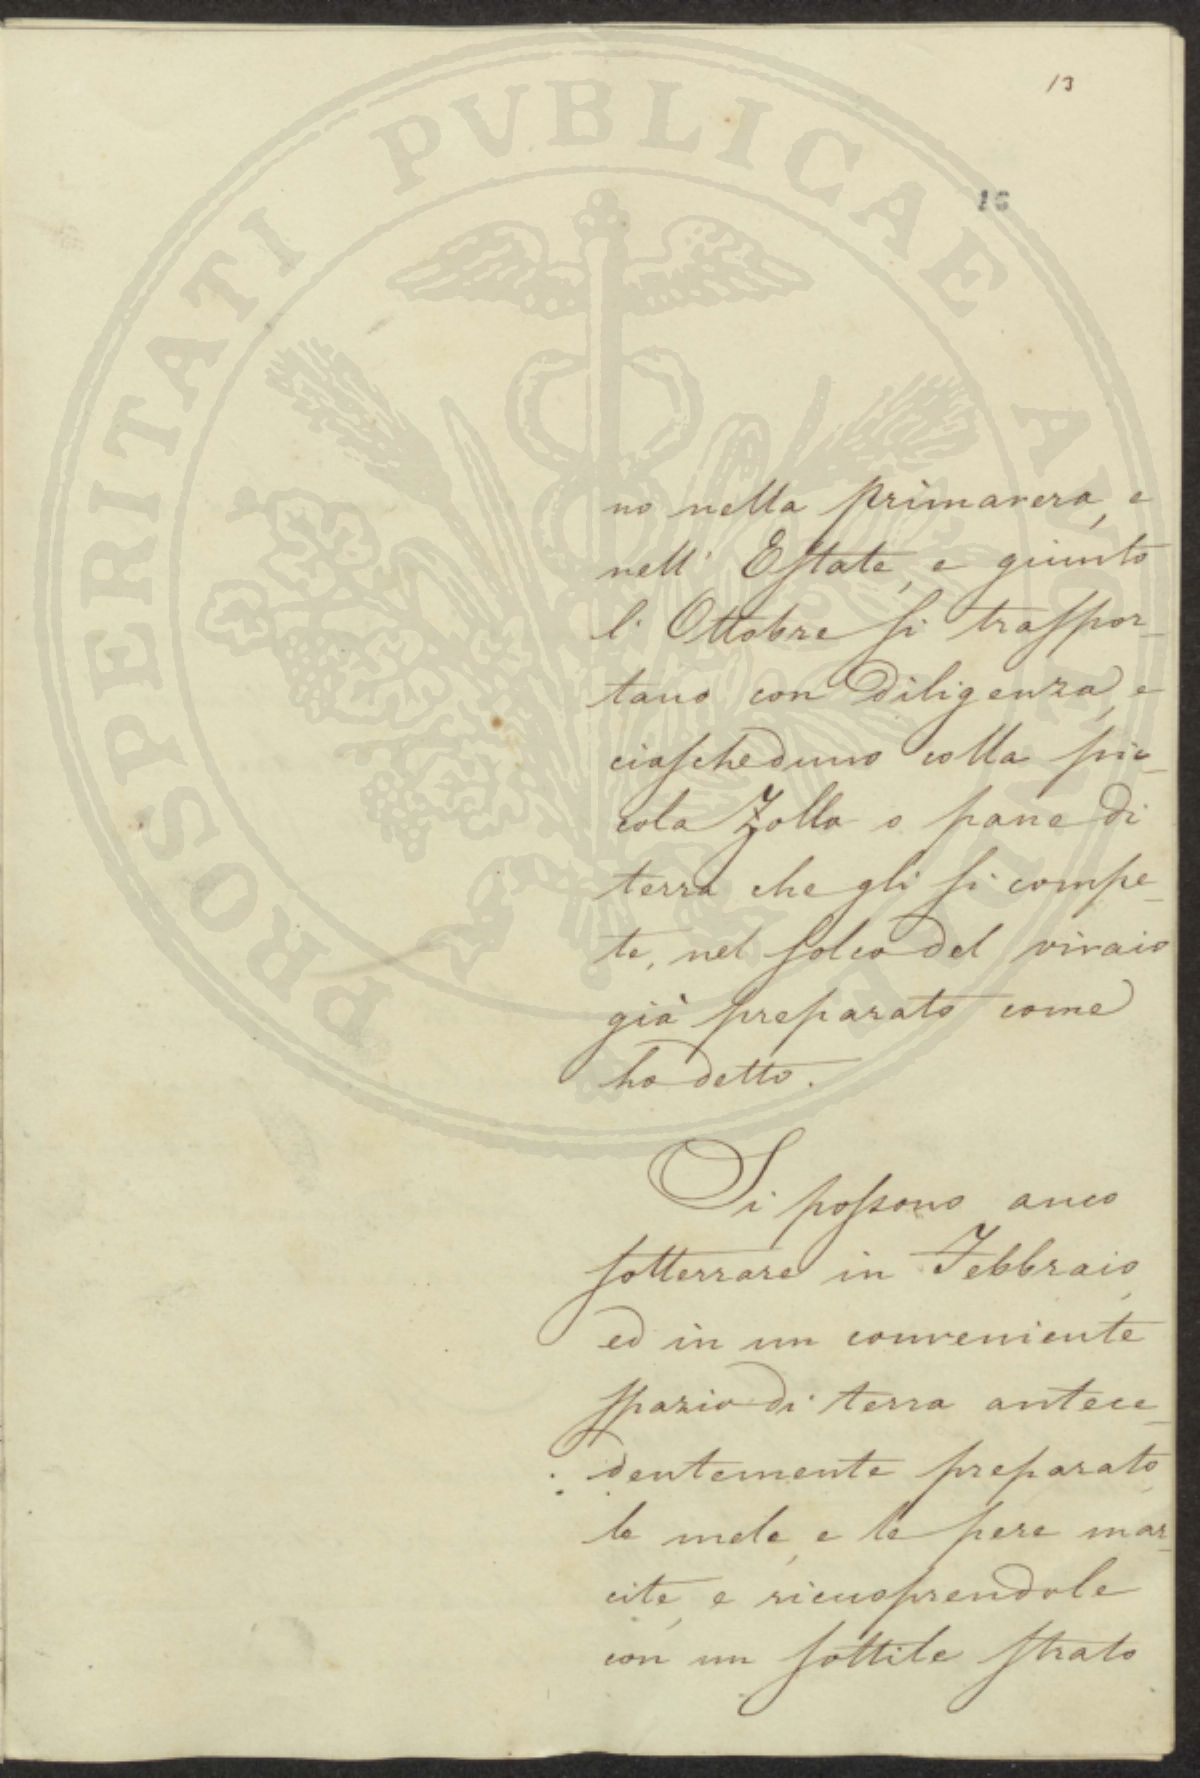 13
16
PROSPERITATI PUBLICAE AUGENDAE
no nella primavera, e
nell' Estate, e giunto
l'Ottobre si traspor-
tano con diligenza, e
ciascheduno colla pic-
cola Zolla o pane di
terra che gli si compe-
te, nel solco del vivaio
già preparato come
ho detto.
Si possono anco
sotterrare in Febbraio,
ed in un conveniente
spazio di terra antece-
dentemente preparato,
le mele, e le pere mar-
cite, e ricuoprendole
con un sottile strato